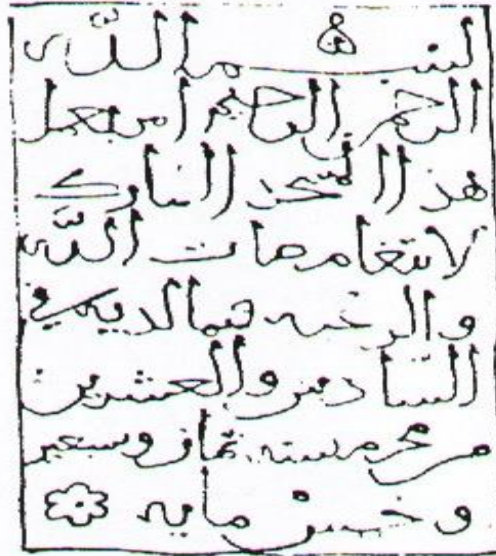 بسم الله
الرحمن الرحيم امر بعمل
هذا المسجد المبارك
لابتغا مرضات الله
والرغبه فيما لديه في
السادس والعشرين
من محرم سنه ثمان وسبعين
وخمس مايه